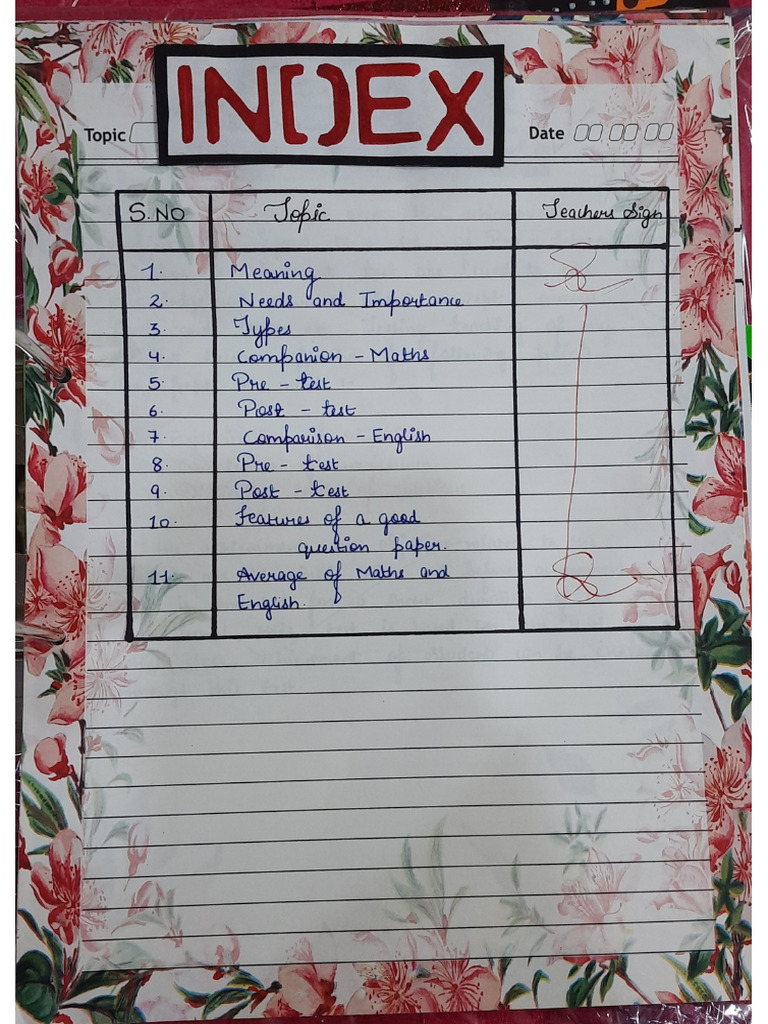 INDEX
Topic
Date
S.NO Topic Teachers Sign
1. Meaning
2. Needs and Importance
3. Types
4. Companion - Maths
5. Pre - test
6. Post - test
7. Comparison - English
8. Pre - test
9. Post - test
10. Features of a good
question paper.
11. Average of Maths and
English.